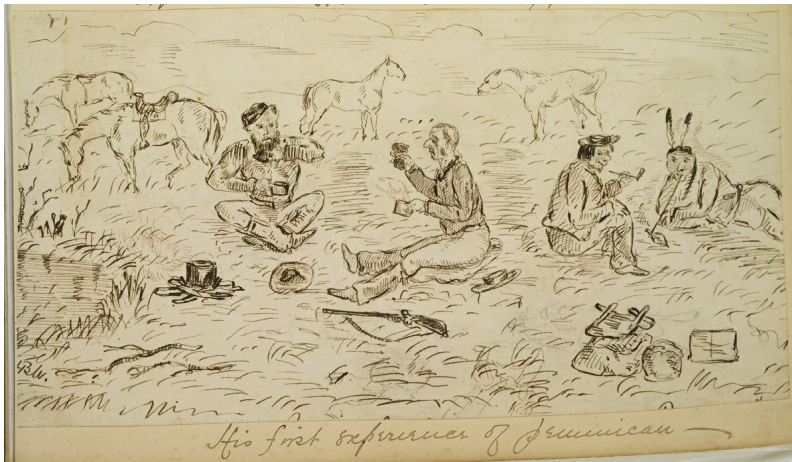 His first experience of pemmican —